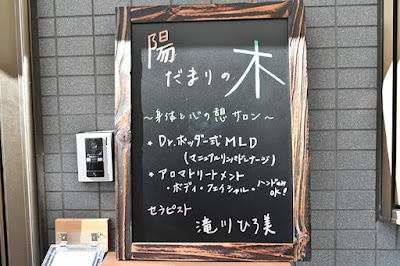 陽だまりの木
～身体と心の憩サロン～
* Dr.ボッダー式MLD
(マニュアルリンパドレナージ)
* アロマトリートメント
・ボディ・フェイシャル・ハンドのみOK!
セラピスト
滝川ひろ美